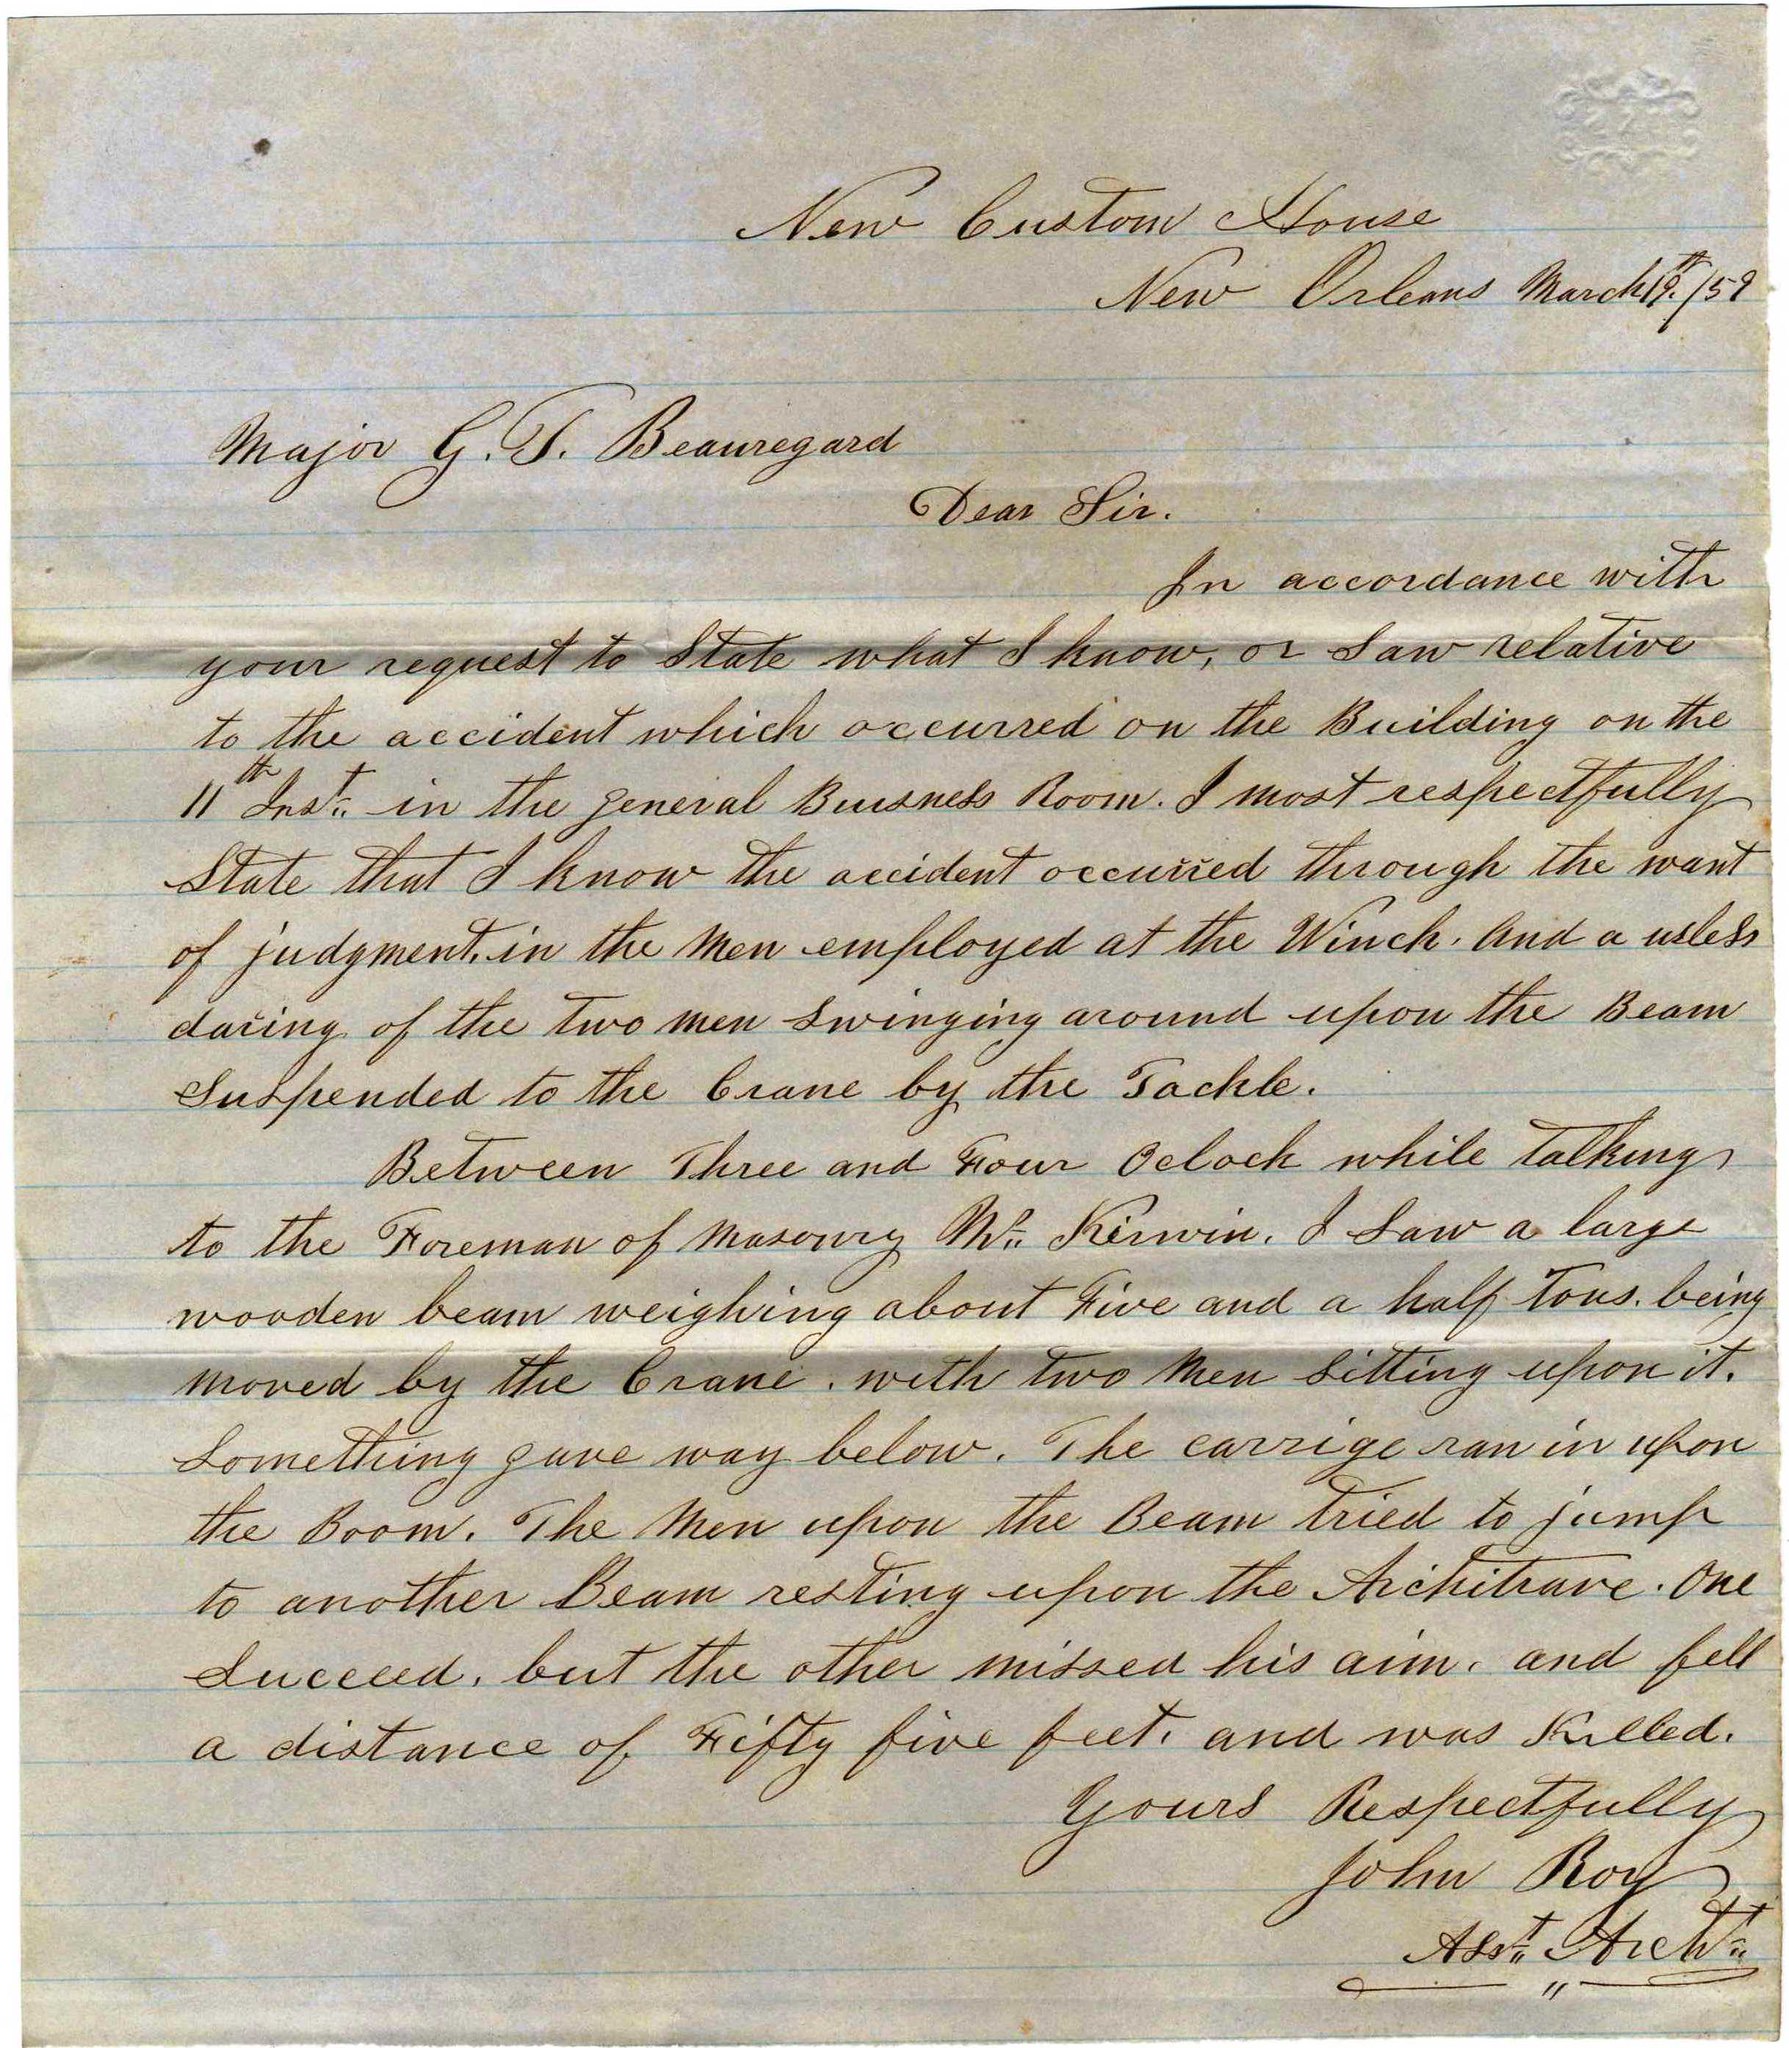 New Custom House
New Orleans March 19th /59
Major G. T. Beauregard
Dear Sir.
In accordance with
your request to State what I know, or Saw relative
to the accident which occurred on the Building on the
11th Inst. in the general Buisness Room. I most respectfully
State that I know the accident occurred through the want
of judgment. in the Men employed at the Winch. And a usless
daring of the two men Swinging around upon the Beam
Suspended to the Crane by the Tackle.
Between Three and Four Oclock while talking
to the Foreman of Masonry Mr. Kirwin. I Saw a large
wooden beam weighing about Five and a half Tons. being
moved by the Crane. with two Men Sitting upon it.
Something gave way below. The carrige ran in upon
the Boom. The Men upon the Beam tried to jump
to another Beam resting upon the Architrave. One
Succeed. but the other missed his aim. and fell
a distance of Fifty five feet. and was Killed.
Yours Respectfully
John Roy
Asst. Archt.